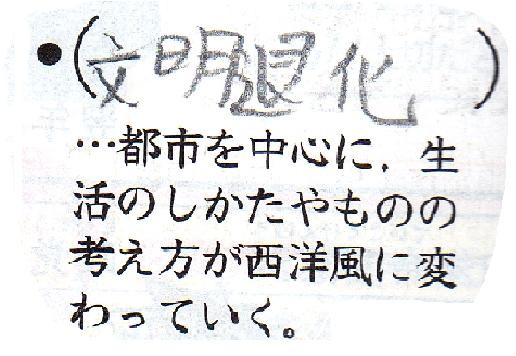 ●(文明退化)
…都市を中心に，生
活のしかたやものの
考え方が西洋風に変
わっていく。